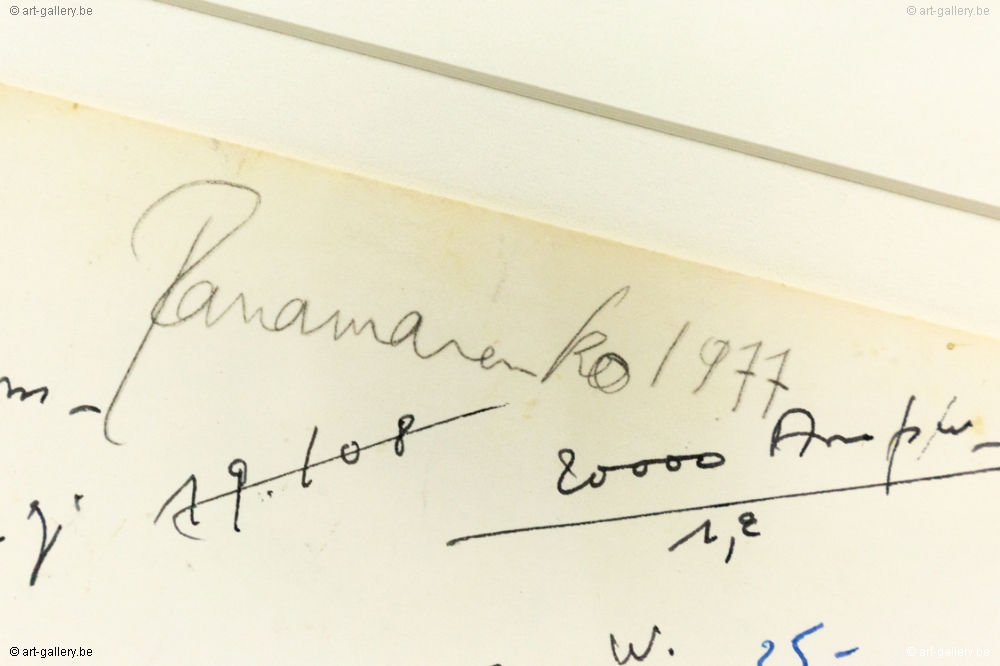 © art-gallery.be © art-gallery.be
Panamarenko 1977
19.108
20000
1,2
W. 25-
© art-gallery.be © art-gallery.be